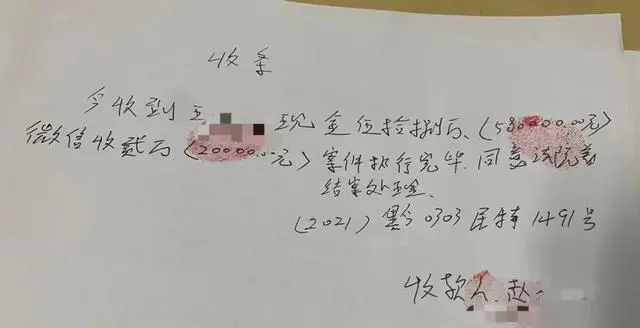 收条
今收到王 现金伍拾捌万、(580000.00元)
微信收贰万(20000.00元)案件执行完毕.同意法院
结案处理.
(2021)黔0303民特1491号
收款人.赵